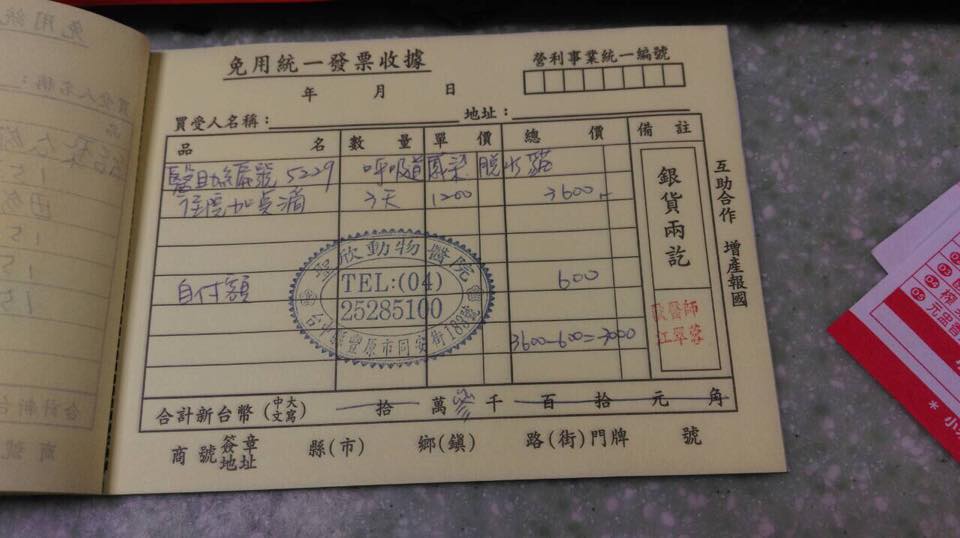 免用統一發票收據
營利事業統一編號
年 月 日
買受人名稱： 地址：
品 名 數 量 單 價 總 價 備 註
醫助編號5229 呼吸道感染 脫水 貓
住院加受滴 3天 1200 3600
銀貨兩訖
互助合作 增產報國
聖欣動物醫院
TEL:(04)
25285100
台中縣豐原市同安街188號
自付額 600
獸醫師
江翠蓉
3600-600=3000
合計新台幣(中文大寫) 拾 萬 千 百 拾 元 角
商號簽章地址 縣(市) 鄉(鎮) 路(街)門牌 號